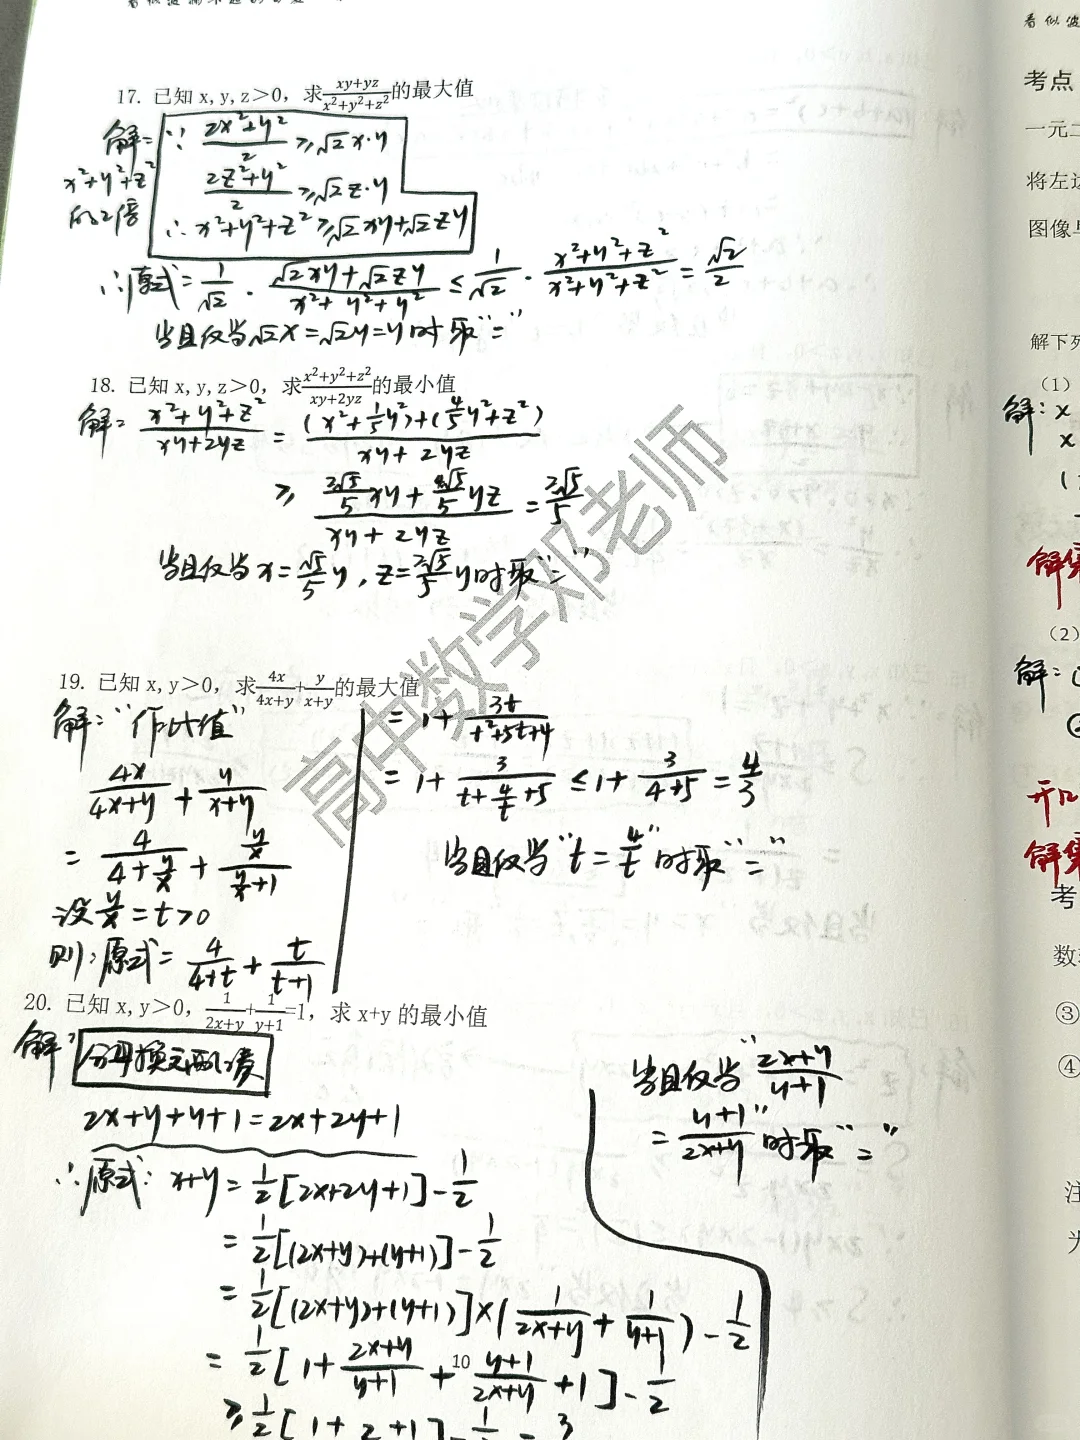 17. 已知 x,y,z＞0，求(xy+yz)/(x²+y²+z²)的最大值
解: ∵ (2x²+y²)/2 ≥ √2 x·y
x²+y²+z²
的2倍
(2z²+y²)/2 ≥ √2 z·y
∴ x²+y²+z² ≥ √2xy+√2zy
∴原式 = 1/√2 · (√2xy+√2zy)/(x²+y²+y²) ≤ 1/√2 · (x²+y²+z²)/(x²+y²+z²) = √2/2
当且仅当√2x=√2y=y时取"="
18. 已知 x,y,z＞0，求(x²+y²+z²)/(xy+2yz)的最小值
解: (x²+y²+z²)/(xy+2yz) = ((x²+1/5y²)+(4/5y²+z²))/(xy+2yz)
≥ (2√5/5 xy + 4√5/5 yz)/(xy+2yz) = 2√5/5
当且仅当x=√5/5 y，z=2√5/5 y时取"="
19. 已知 x,y＞0，求4x/(4x+y)+y/(x+y)的最大值
解: "作比值"
4x/(4x+y) + y/(x+y)
= 4/(4+y/x) + (y/x)/(y/x+1)
设y/x=t>0
则:原式= 4/(4+t) + t/(t+1)
= 1+ 3t/(t²+5t+4)
= 1+ 3/(t+4/t+5) ≤ 1+ 3/(4+5) = 4/3
当且仅当"t=4/t"时取"="
20. 已知 x,y＞0，1/(2x+y)+1/(y+1)=1，求 x+y 的最小值
解: 分母换元配凑
2x+y+y+1=2x+2y+1
∴原式: x+y = 1/2[2x+2y+1]-1/2
= 1/2[(2x+y)+(y+1)]-1/2
= 1/2[(2x+y)+(y+1)]×(1/(2x+y) + 1/(y+1)) - 1/2
= 1/2[1+ (2x+y)/(y+1) + (y+1)/(2x+y) +1]-1/2
≥ 1/2[1+2+1]-1/2 = 3
当且仅当"(2x+y)/(y+1)
= (y+1)/(2x+y)"时取"="
10
高中数学邓老师
看似波
考点
一元二
将左边
图像与
解下列
（1）
解: x
x
解集
（2）
解:
②
开口
解集
考
数
③
④
注
为